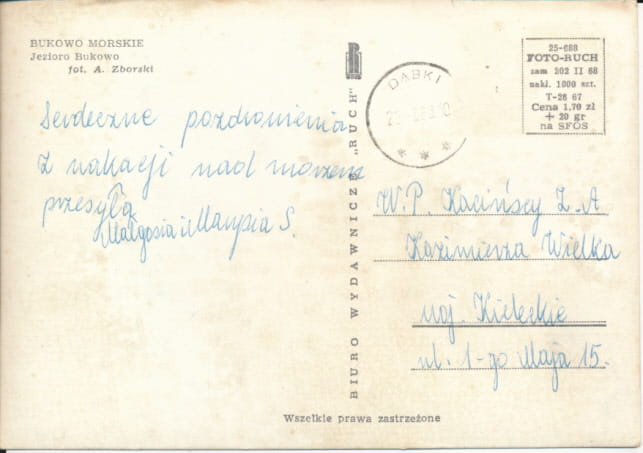 BUKOWO MORSKIE
Jezioro Bukowo
fot. A. Zborski
Serdeczne pozdrowienia
z wakacji nad morzem
przesyła
Małgosia i Marysia S.
BIURO WYDAWNICZE „RUCH"
DĄBKI
25-688
FOTO-RUCH
zam 202 II 68
nakl. 1000 szt.
T-26 67
Cena 1,70 zł
+ 20 gr
na SFOS
W.P. Kacińscy Z. A
Kazimierza Wielka
woj. Kieleckie
ul. 1-go Maja 15.
Wszelkie prawa zastrzeżone